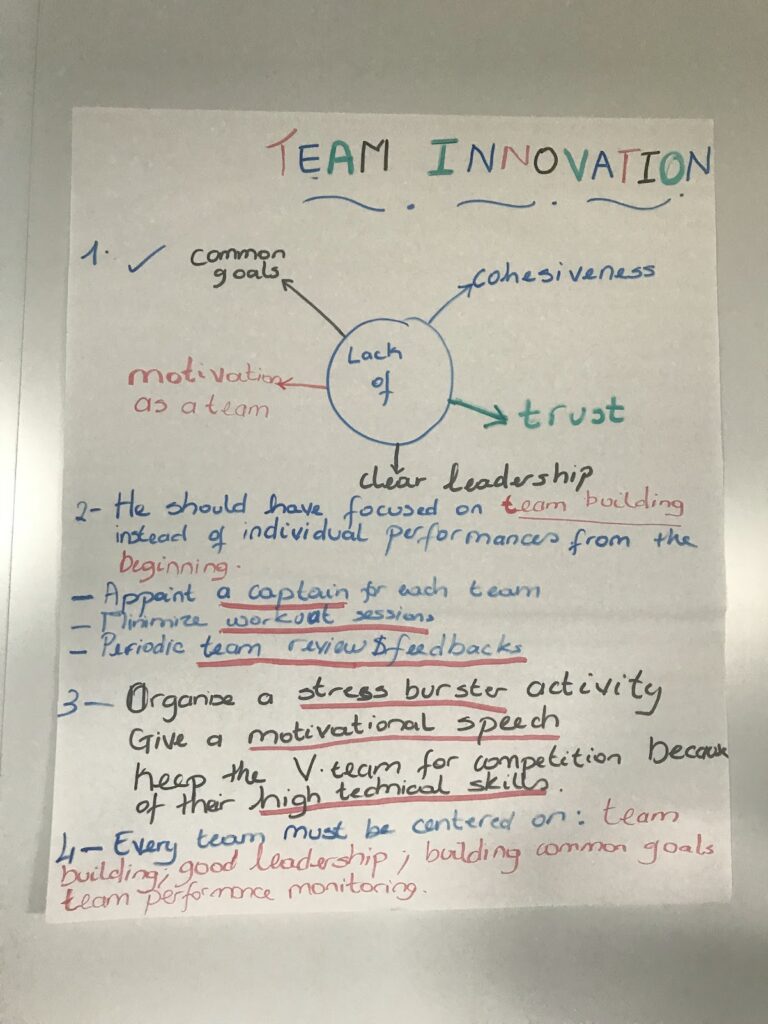 TEAM INNOVATION
1. ✓
common
goals
cohesiveness
Lack
of
motivation
as a team
trust
clear leadership
2- He should have focused on team building
instead of individual performances from the
beginning.
- Appoint a captain for each team
- Minimize workout sessions
- Periodic team review & feedbacks
3- Organise a stress burster activity
Give a motivational speech
Keep the V.team for competition because
of their high technical skills.
4- Every team must be centered on: team
building; good leadership; building common goals
team performance monitoring.